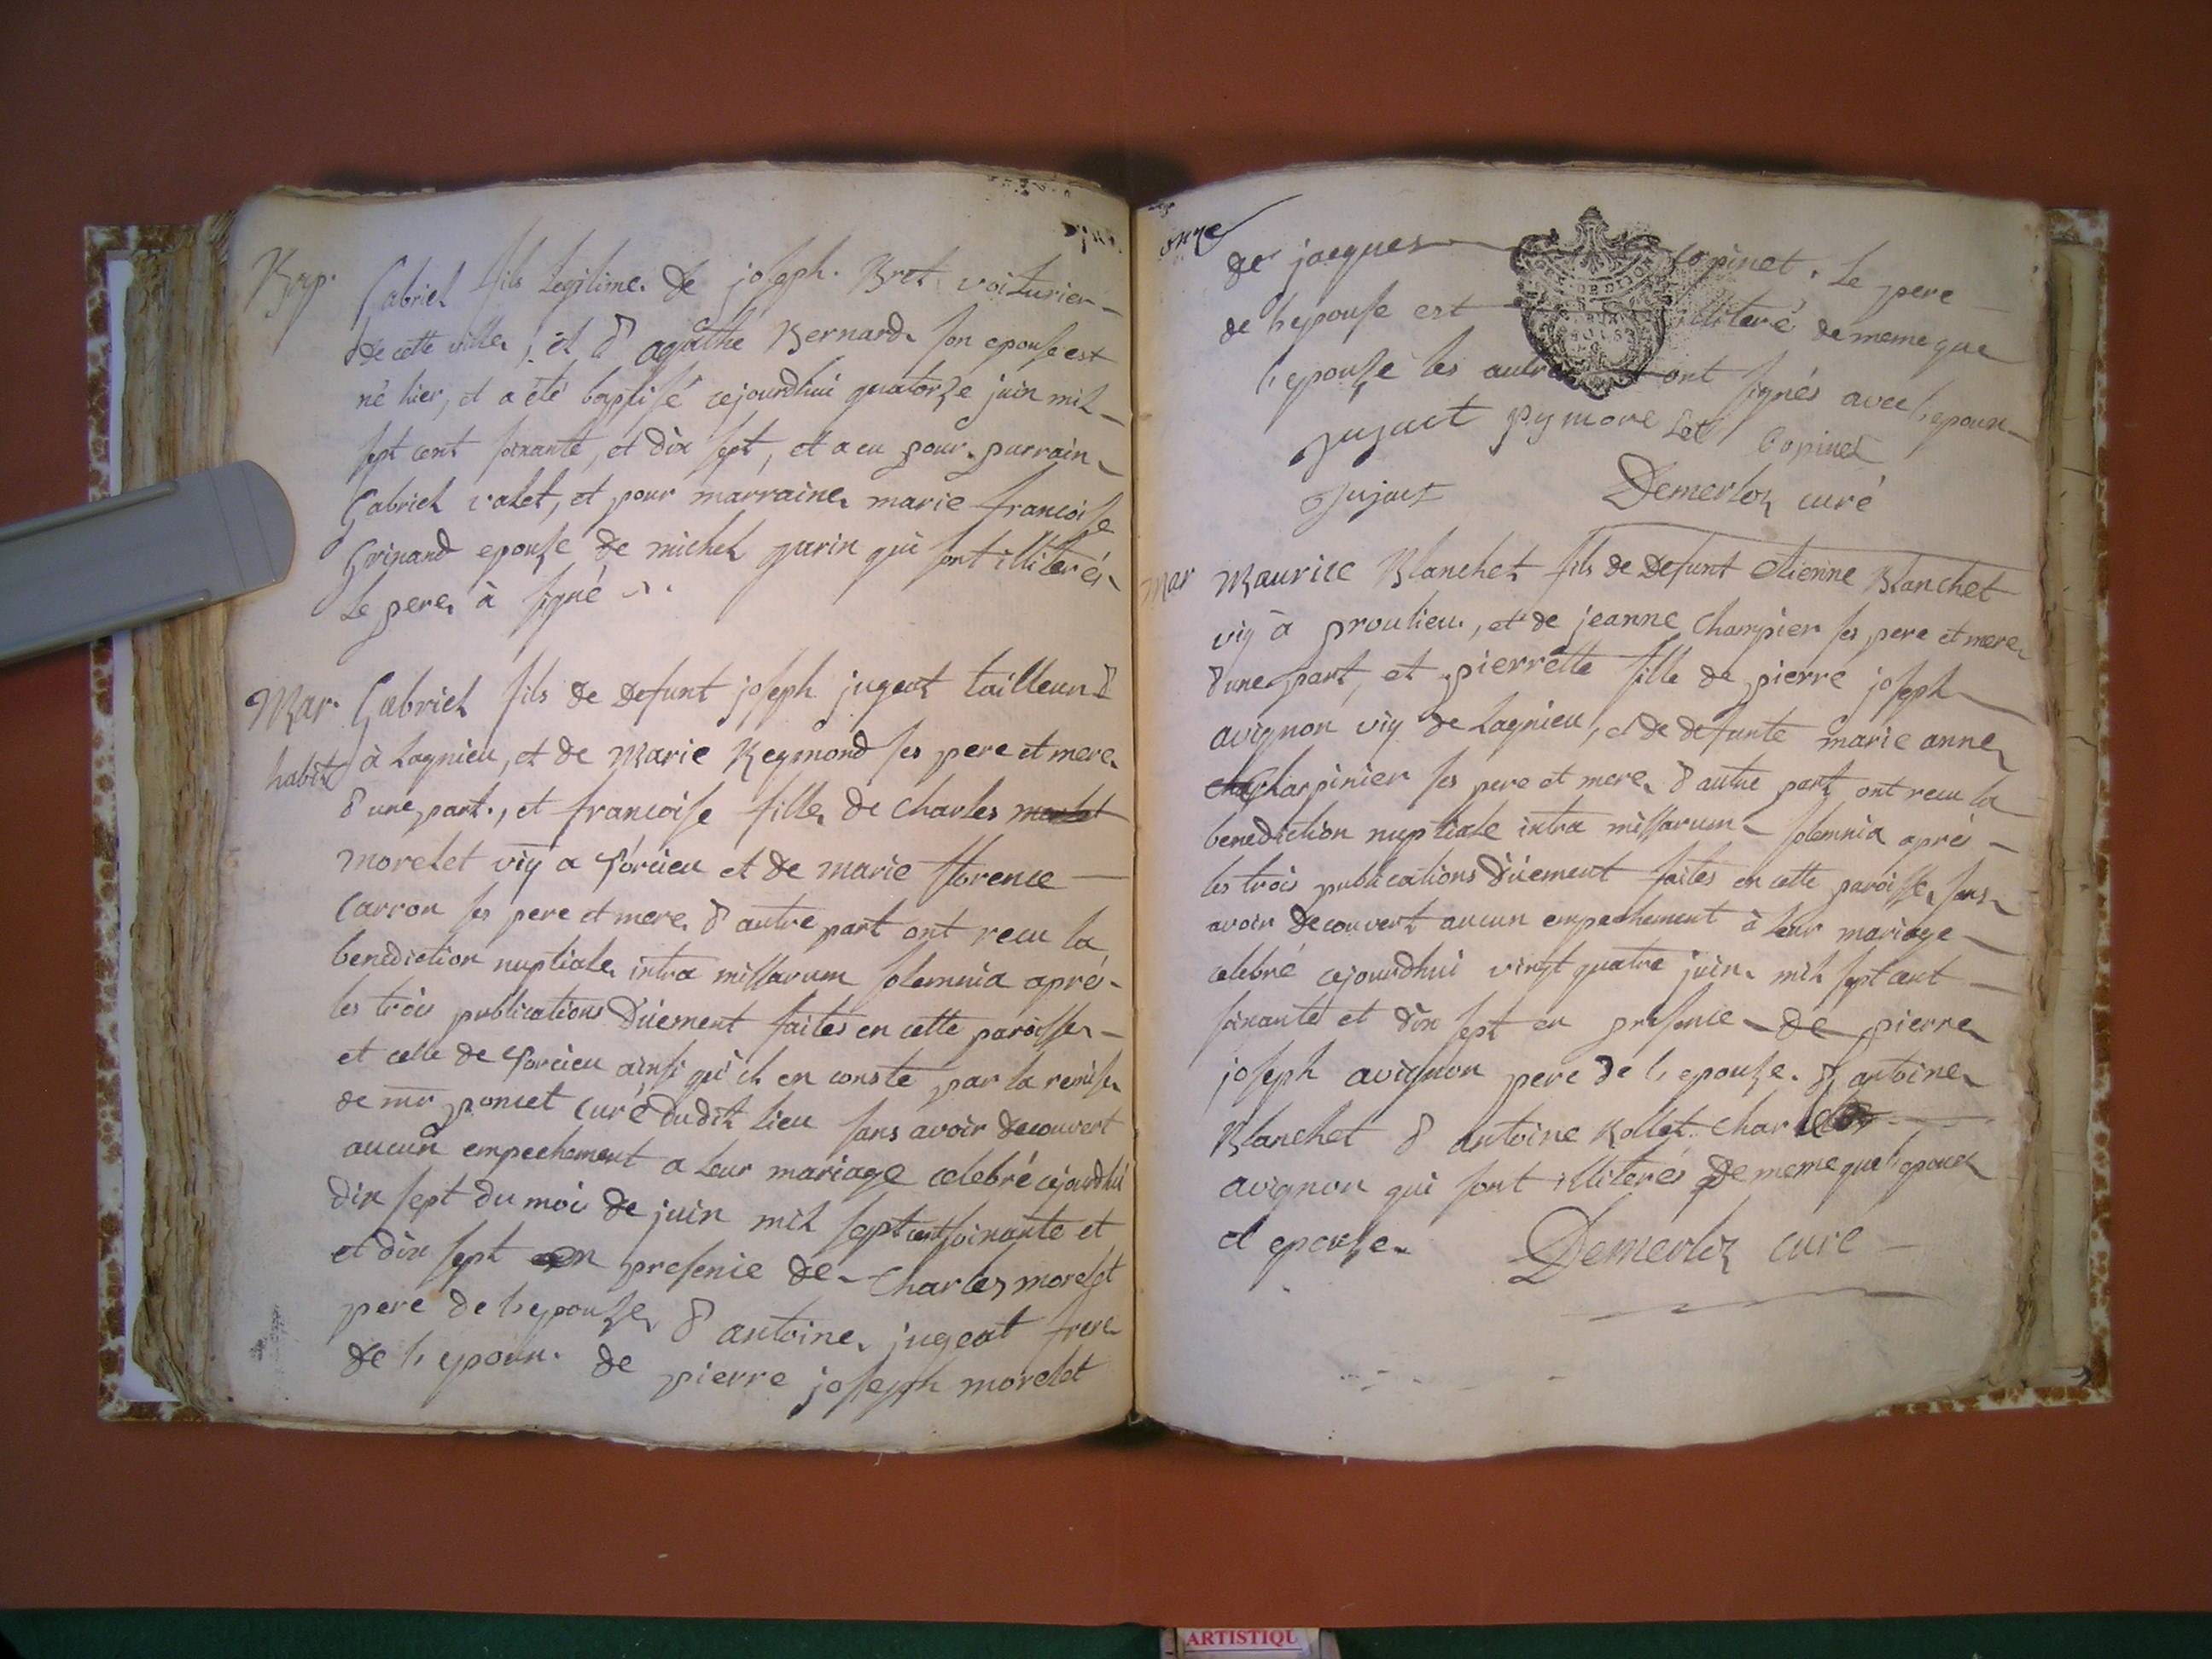 Bap. Gabriel fils legitime de joseph Bret voiturier
de cette ville, et d'agathe Bernard son epouse est
né hier, et a été baptisé cejourdhui quatorze juin mil
sept cent soixante, et dix sept, et a eu pour parrain
Gabriel valet, et pour marraine marie francoise
Grinand epouse de michel parin qui sont illiterés
le pere à signé
Mar. Gabriel fils de defunt joseph jugeat tailleur d
habits à Lagnieu, et de Marie Reymond ses pere et mere
d'une part., et francoise fille de Charles
morelet vig a Sorcieu et de marie florence
Carron ses pere et mere d'autre part ont recu la
benediction nuptiale intra missarum solemnia aprés
les trois publications düement faites en cette paroisse
et celle de Sorcieu ainsi qu'il en conste par la remise
de mr poncet Curé dudit lieu sans avoir decouvert
aucun empechement a leur mariage celebré cejourdhui
dix sept du mois de juin mil sept cent soixante et
et dix sept en presence de Charles morelet
pere de l'epouse, d'antoine jugeat frere
de l'epoux. de pierre joseph morelet
onze
de jacques Copinet. Le pere
de l'epouse est illiteré de meme que
l'epouse les autres ont signés avec l'epoux
jujact pymorelet Copinet
jujact Demerloz curé
Mar Maurice Blanchet fils de Defunt etienne Blanchet
vig à proulieu, et de jeanne Champier ses pere et mere
d'une part, et pierrette fille de pierre joseph
avignon vig de Lagnieu, et de defunte marie anne
Charpinier ses pere et mere d'autre part ont recu la
benediction nuptiale intra missarum solemnia aprés
les trois publications düement faites en cette paroisse sans
avoir decouvert aucun empechement à leur mariage
celebré cejourdhui vingt quatre juin mil sept cent
soixante et dix sept en presence de pierre
joseph avignon pere de l'epouse. d'antoine
Blanchet d'antoine Rollet Charles
avignon qui sont illiterés de meme que l'epoux
et epouse. Demerloz curé
ARTISTIQU